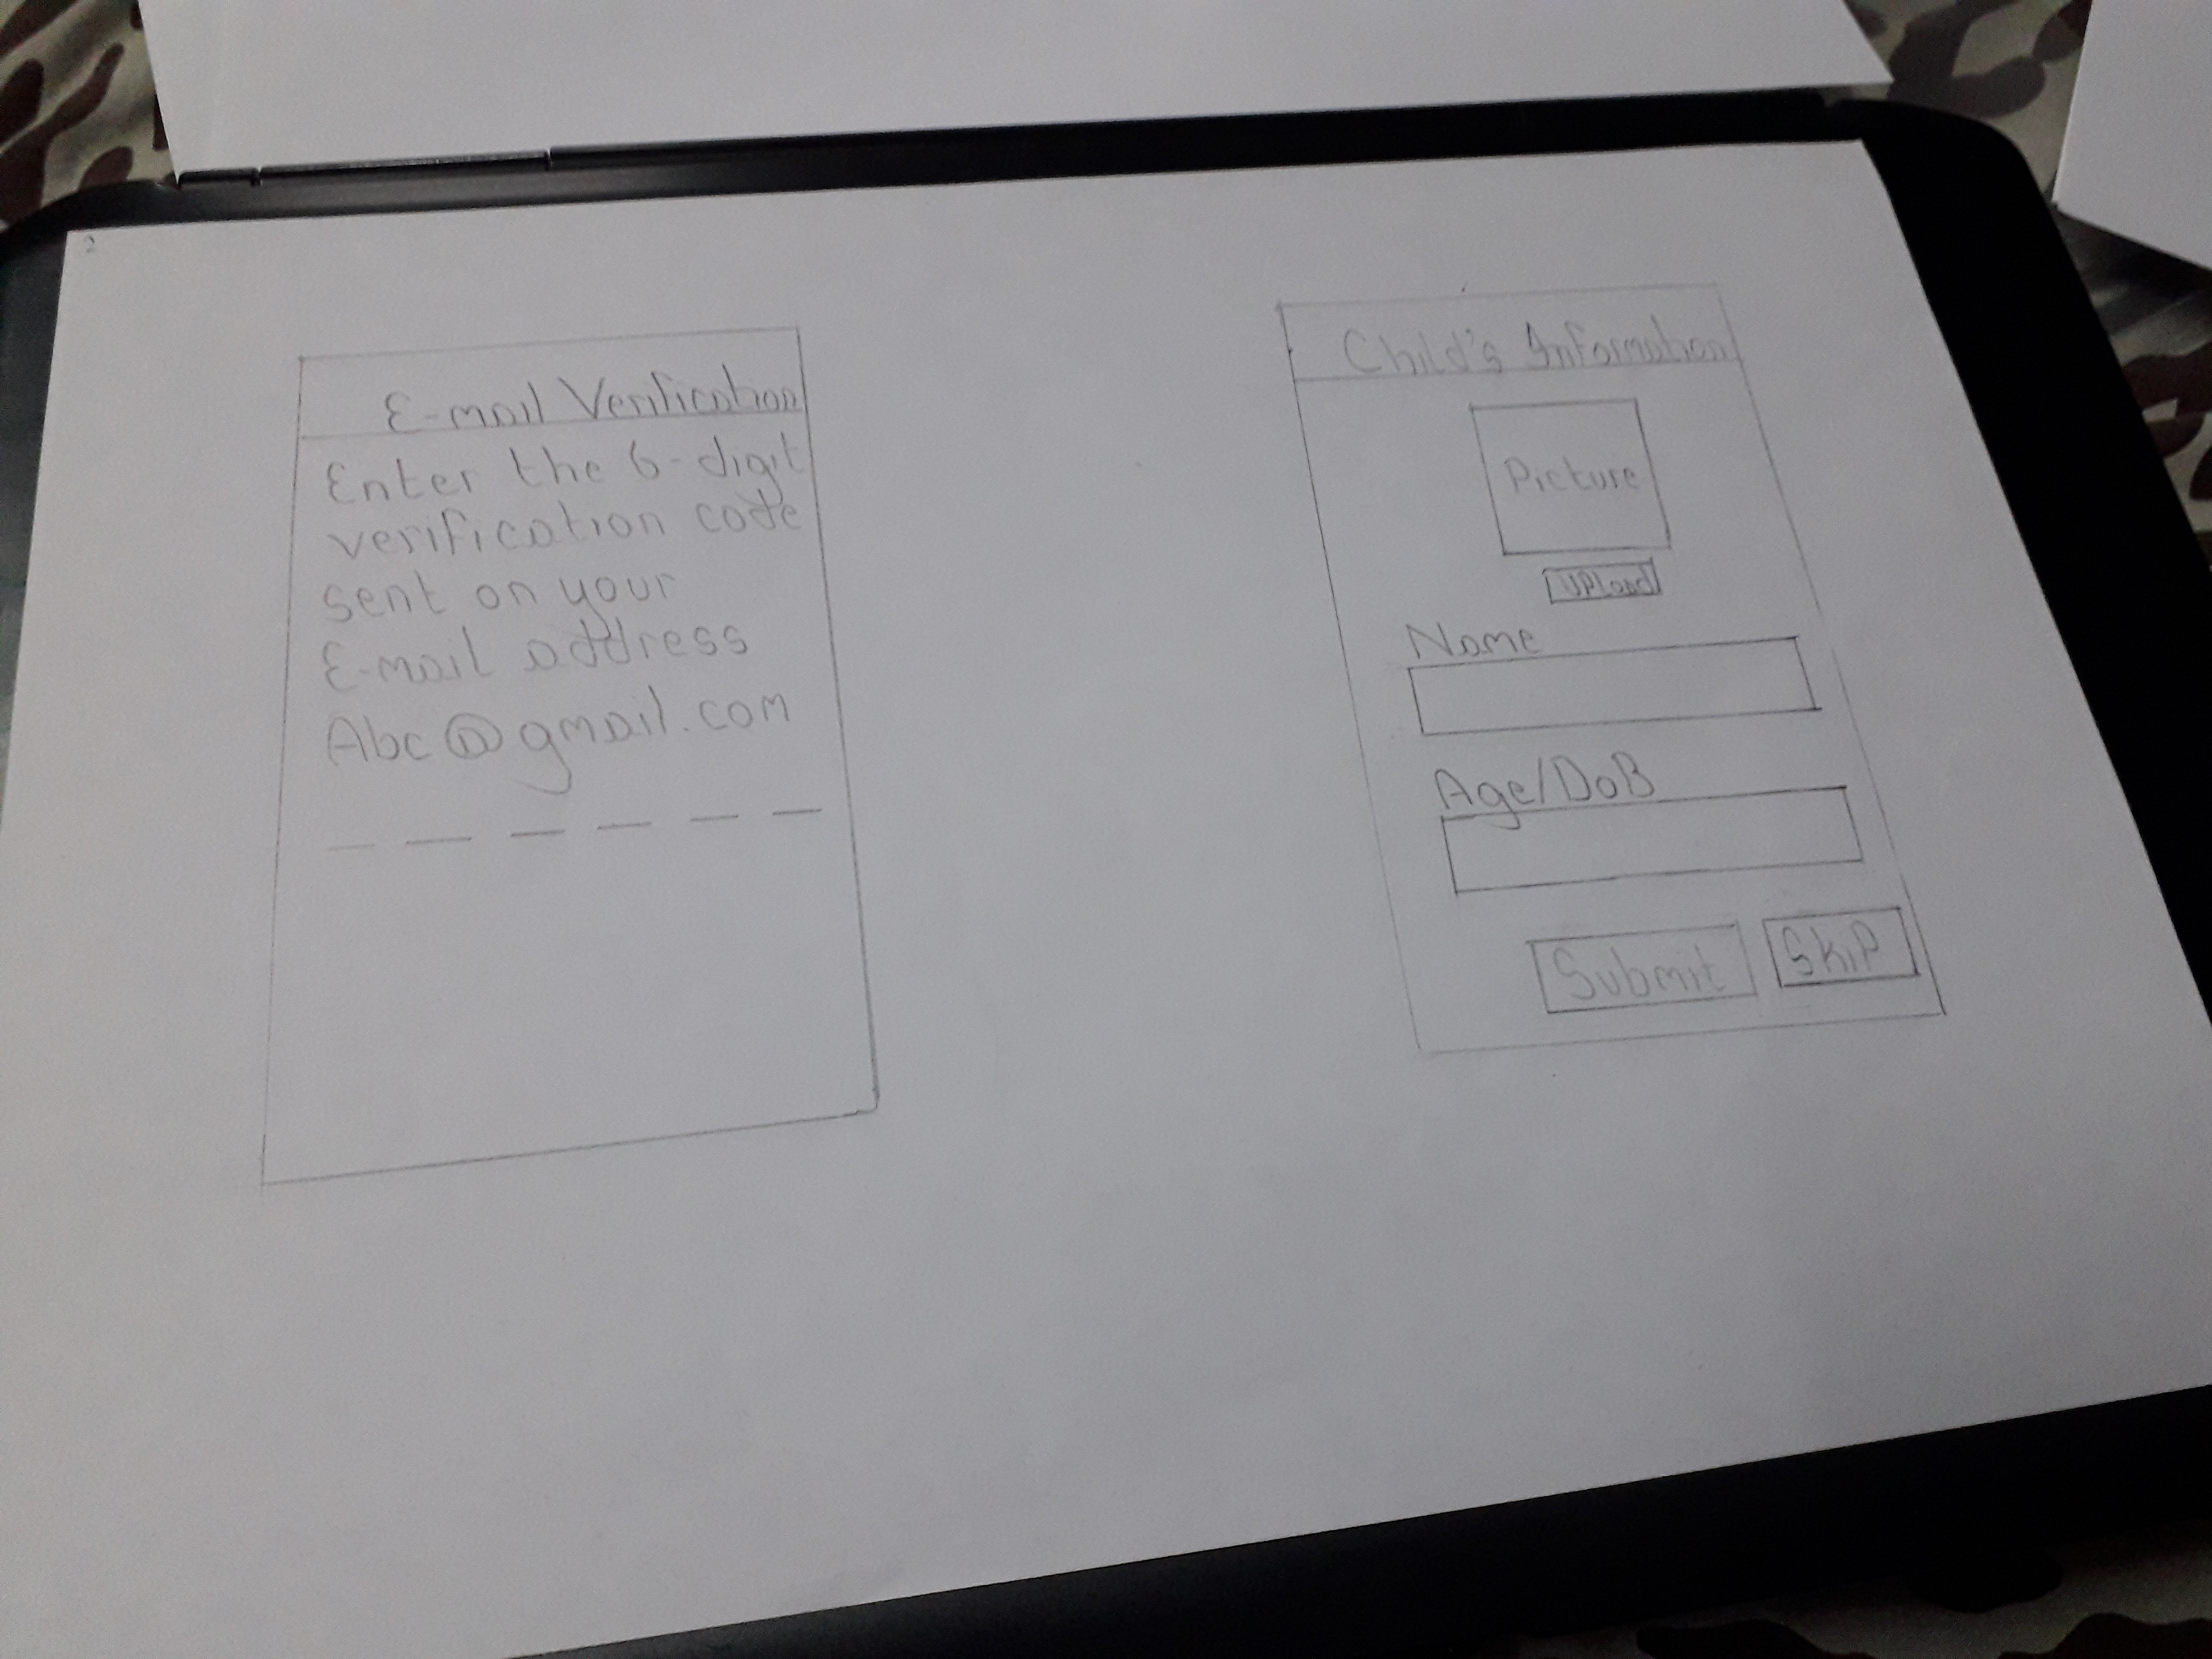 2
E-mail Verification
Enter the 6-digit
verification code
sent on your
E-mail address
Abc@gmail.com
Child's Information
Picture
Upload
Name
Age/DoB
Submit
Skip